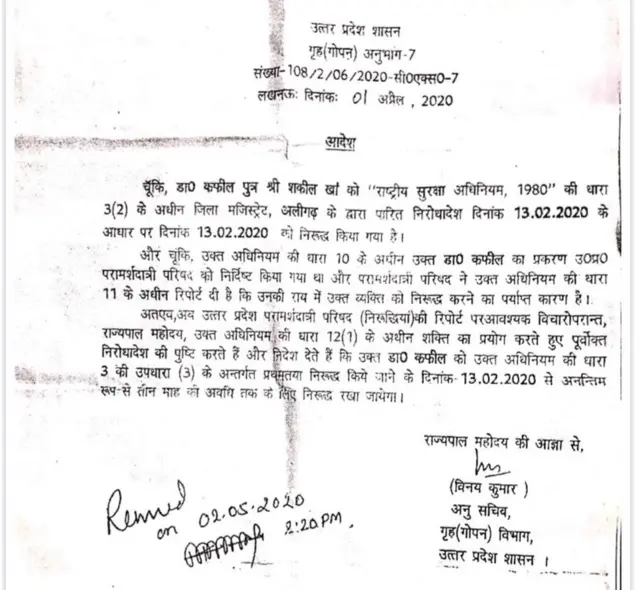 उत्तर प्रदेश शासन
गृह(गोपन) अनुभाग-7
संख्या-108/2/06/2020-सी0एक्स0-7
लखनऊः दिनांकः 01 अप्रैल , 2020
आदेश
चूंकि, डा0 कफील पुत्र श्री शकील खां को "राष्ट्रीय सुरक्षा अधिनियम, 1980" की धारा
3(2) के अधीन जिला मजिस्ट्रेट, अलीगढ़ के द्वारा पारित निरोधादेश दिनांक 13.02.2020 के
आधार पर दिनांक 13.02.2020 को निरूद्ध किया गया है।
और चूंकि, उक्त अधिनियम की धारा 10 के अधीन उक्त डा0 कफील का प्रकरण उ0प्र0
परामर्शदात्री परिषद को निर्दिष्ट किया गया था और परामर्शदात्री परिषद ने उक्त अधिनियम की धारा
11 के अधीन रिपोर्ट दी है कि उनकी राय में उक्त व्यक्ति को निरूद्ध करने का पर्याप्त कारण है।
अतएव,अब उत्तर प्रदेश परामर्शदात्री परिषद (निरूद्धियां)की रिपोर्ट परआवश्यक विचारोपरान्त,
राज्यपाल महोदय, उक्त अधिनियम की धारा 12(1) के अधीन शक्ति का प्रयोग करते हुए पूर्वोक्त
निरोधादेश की पुष्टि करते हैं और निदेश देते हैं कि उक्त डा0 कफील को उक्त अधिनियम की धारा
3 की उपधारा (3) के अन्तर्गत प्रथमतया निरूद्ध किये जाने के दिनांक-13.02.2020 से अनन्तिम
रूप-से तीन माह की अवधि तक के लिए निरूद्ध रखा जायेगा।
राज्यपाल महोदय की आज्ञा से,
(विनय कुमार )
अनु सचिव,
गृह(गोपन) विभाग,
उत्तर प्रदेश शासन ।
on 02.05.2020
2:20PM.